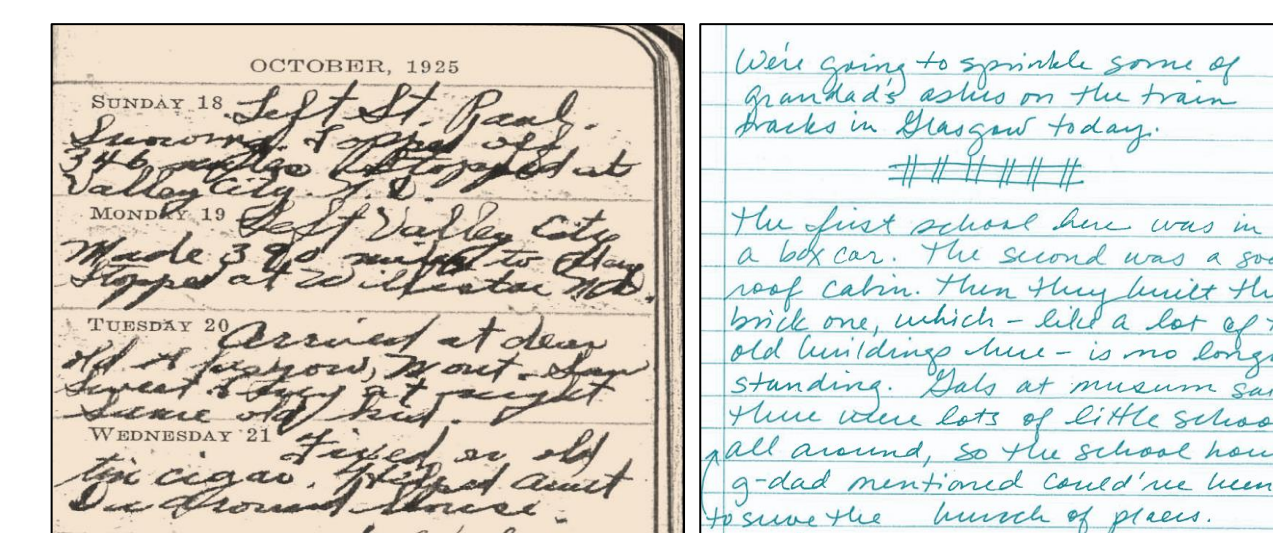 OCTOBER, 1925
SUNDAY 18 Left St. Paul.
Snowing. Stopped off
346 miles Stopped at
Valley City. N. D.
MONDAY 19 Left Valley City
Made 390 miles to day
Stopped at Williston ND.
TUESDAY 20 Arrived at dear
old Glasgow, Mont. Saw
Sweet & Suey at night
Same old kid.
WEDNESDAY 21 Fixed on old
tin cigar. Helped aunt
Du around house.
We're going to sprinkle some of
grandad's ashes on the train
tracks in Glasgow today.
The first school here was in
a box car. The second was a
roof cabin. Then they built
brick one, which - like a lot of
old buildings here - is no
standing. Gals at musum
there were lots of little
all around, so the school
g-dad mentioned could've been
to serve the bunch of places.